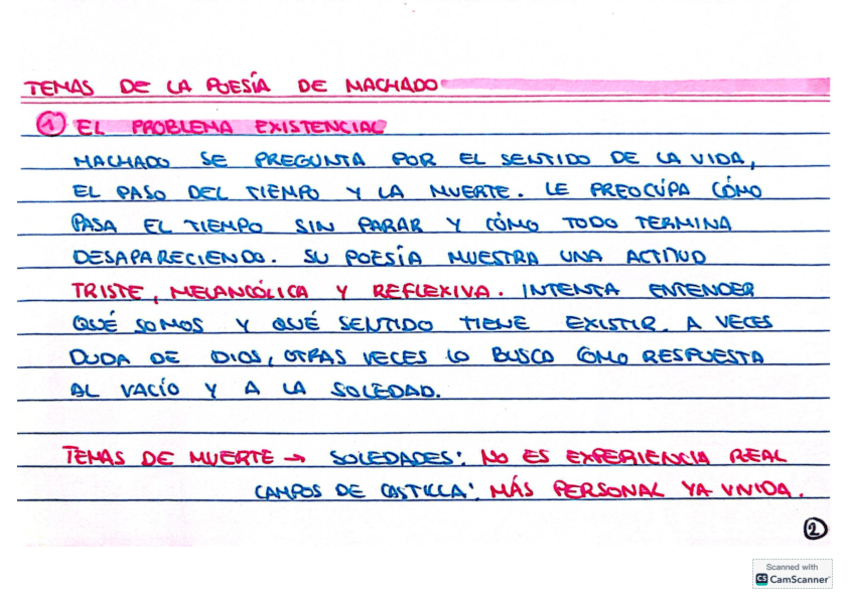 TEMAS DE LA POESÍA DE MACHADO
1 EL PROBLEMA EXISTENCIAL
MACHADO SE PREGUNTA POR EL SENTIDO DE LA VIDA,
EL PASO DEL TIEMPO Y LA MUERTE. LE PREOCUPA CÓMO
PASA EL TIEMPO SIN PARAR Y CÓMO TODO TERMINA
DESAPARECIENDO. SU POESÍA MUESTRA UNA ACTITUD
TRISTE, MELANCÓLICA Y REFLEXIVA. INTENTA ENTENDER
QUÉ SOMOS Y QUÉ SENTIDO TIENE EXISTIR. A VECES
DUDA DE DIOS, OTRAS VECES LO BUSCA COMO RESPUESTA
AL VACÍO Y A LA SOLEDAD.
TEMAS DE MUERTE → SOLEDADES: NO ES EXPERIENCIA REAL
CAMPOS DE CASTILLA: MÁS PERSONAL YA VIVIDA.
2
Scanned with
CS CamScanner